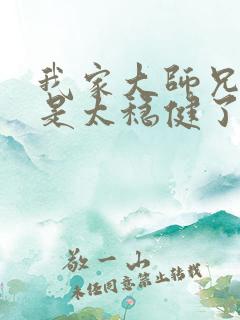 我家大师兄
是太稳健了
敬一山
未经同意禁止转载